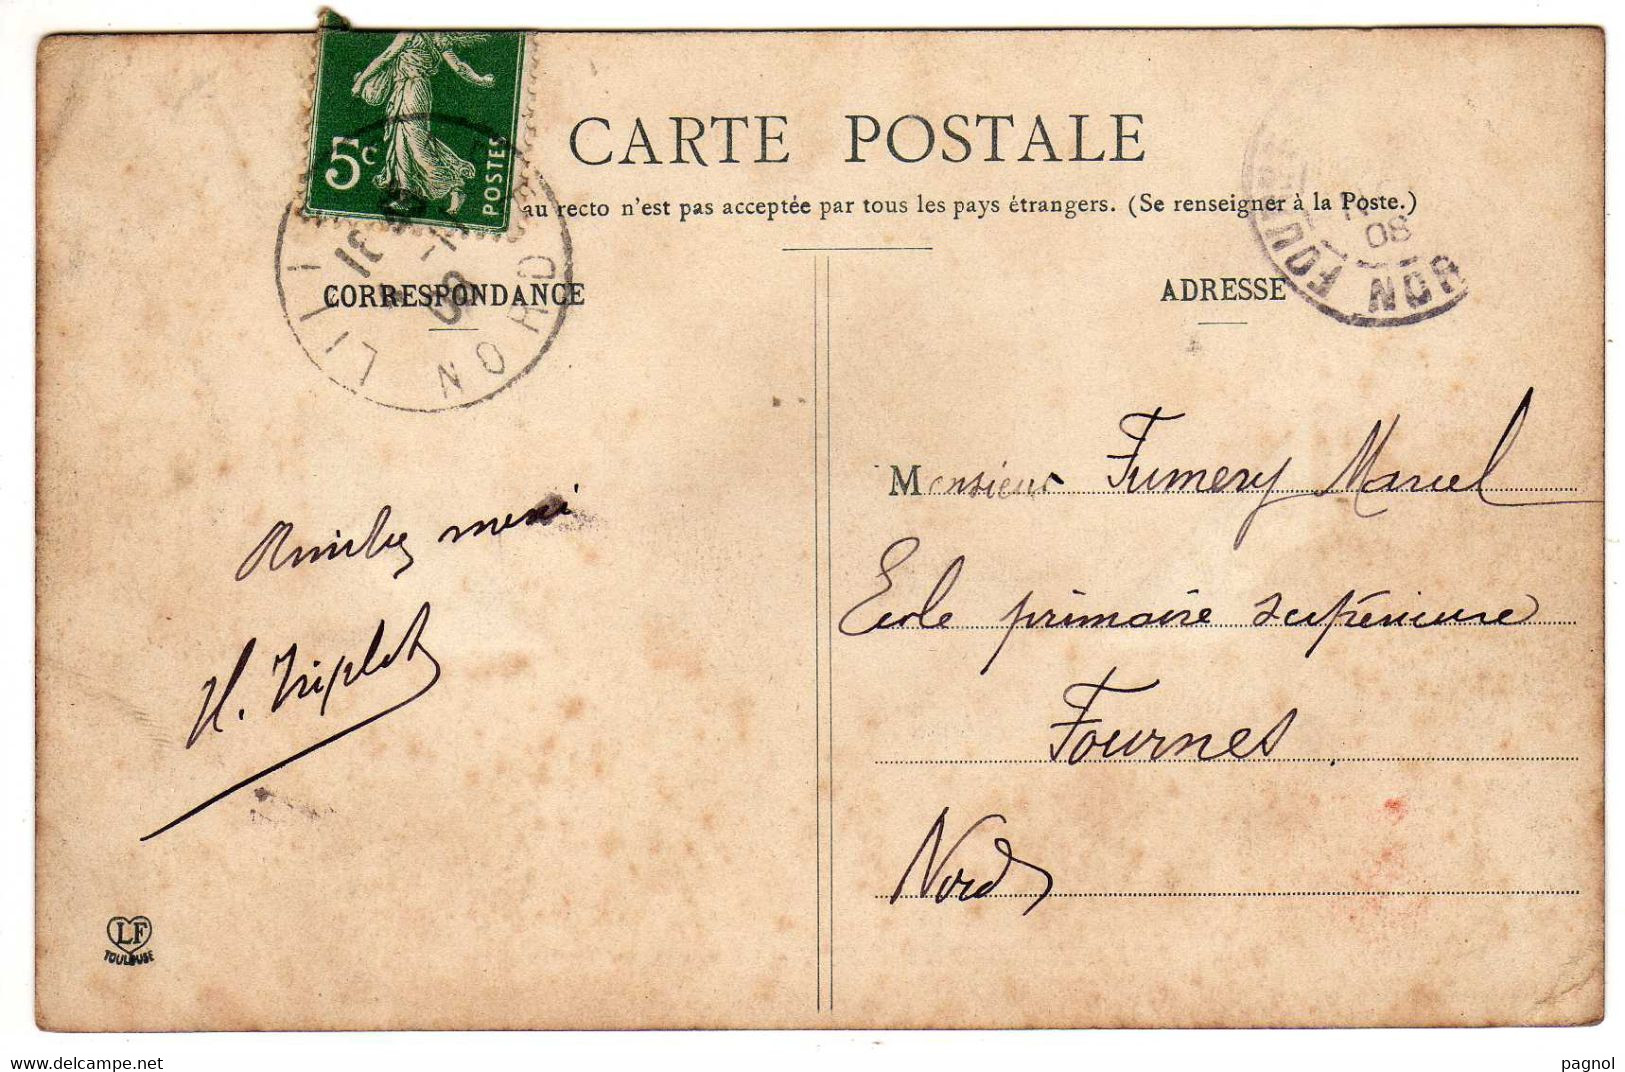 5c
POSTES
CARTE POSTALE
au recto n'est pas acceptée par tous les pays étrangers. (Se renseigner à la Poste.)
08
NOR
CORRESPONDANCE
ADRESSE
LILL
NORD
Monsieur Fumery Marcel
Ecole primaire supérieure
Fournes
Nord
merci
H. Triplet
LF
TOULOUSE
www.delcampe.net
pagnol